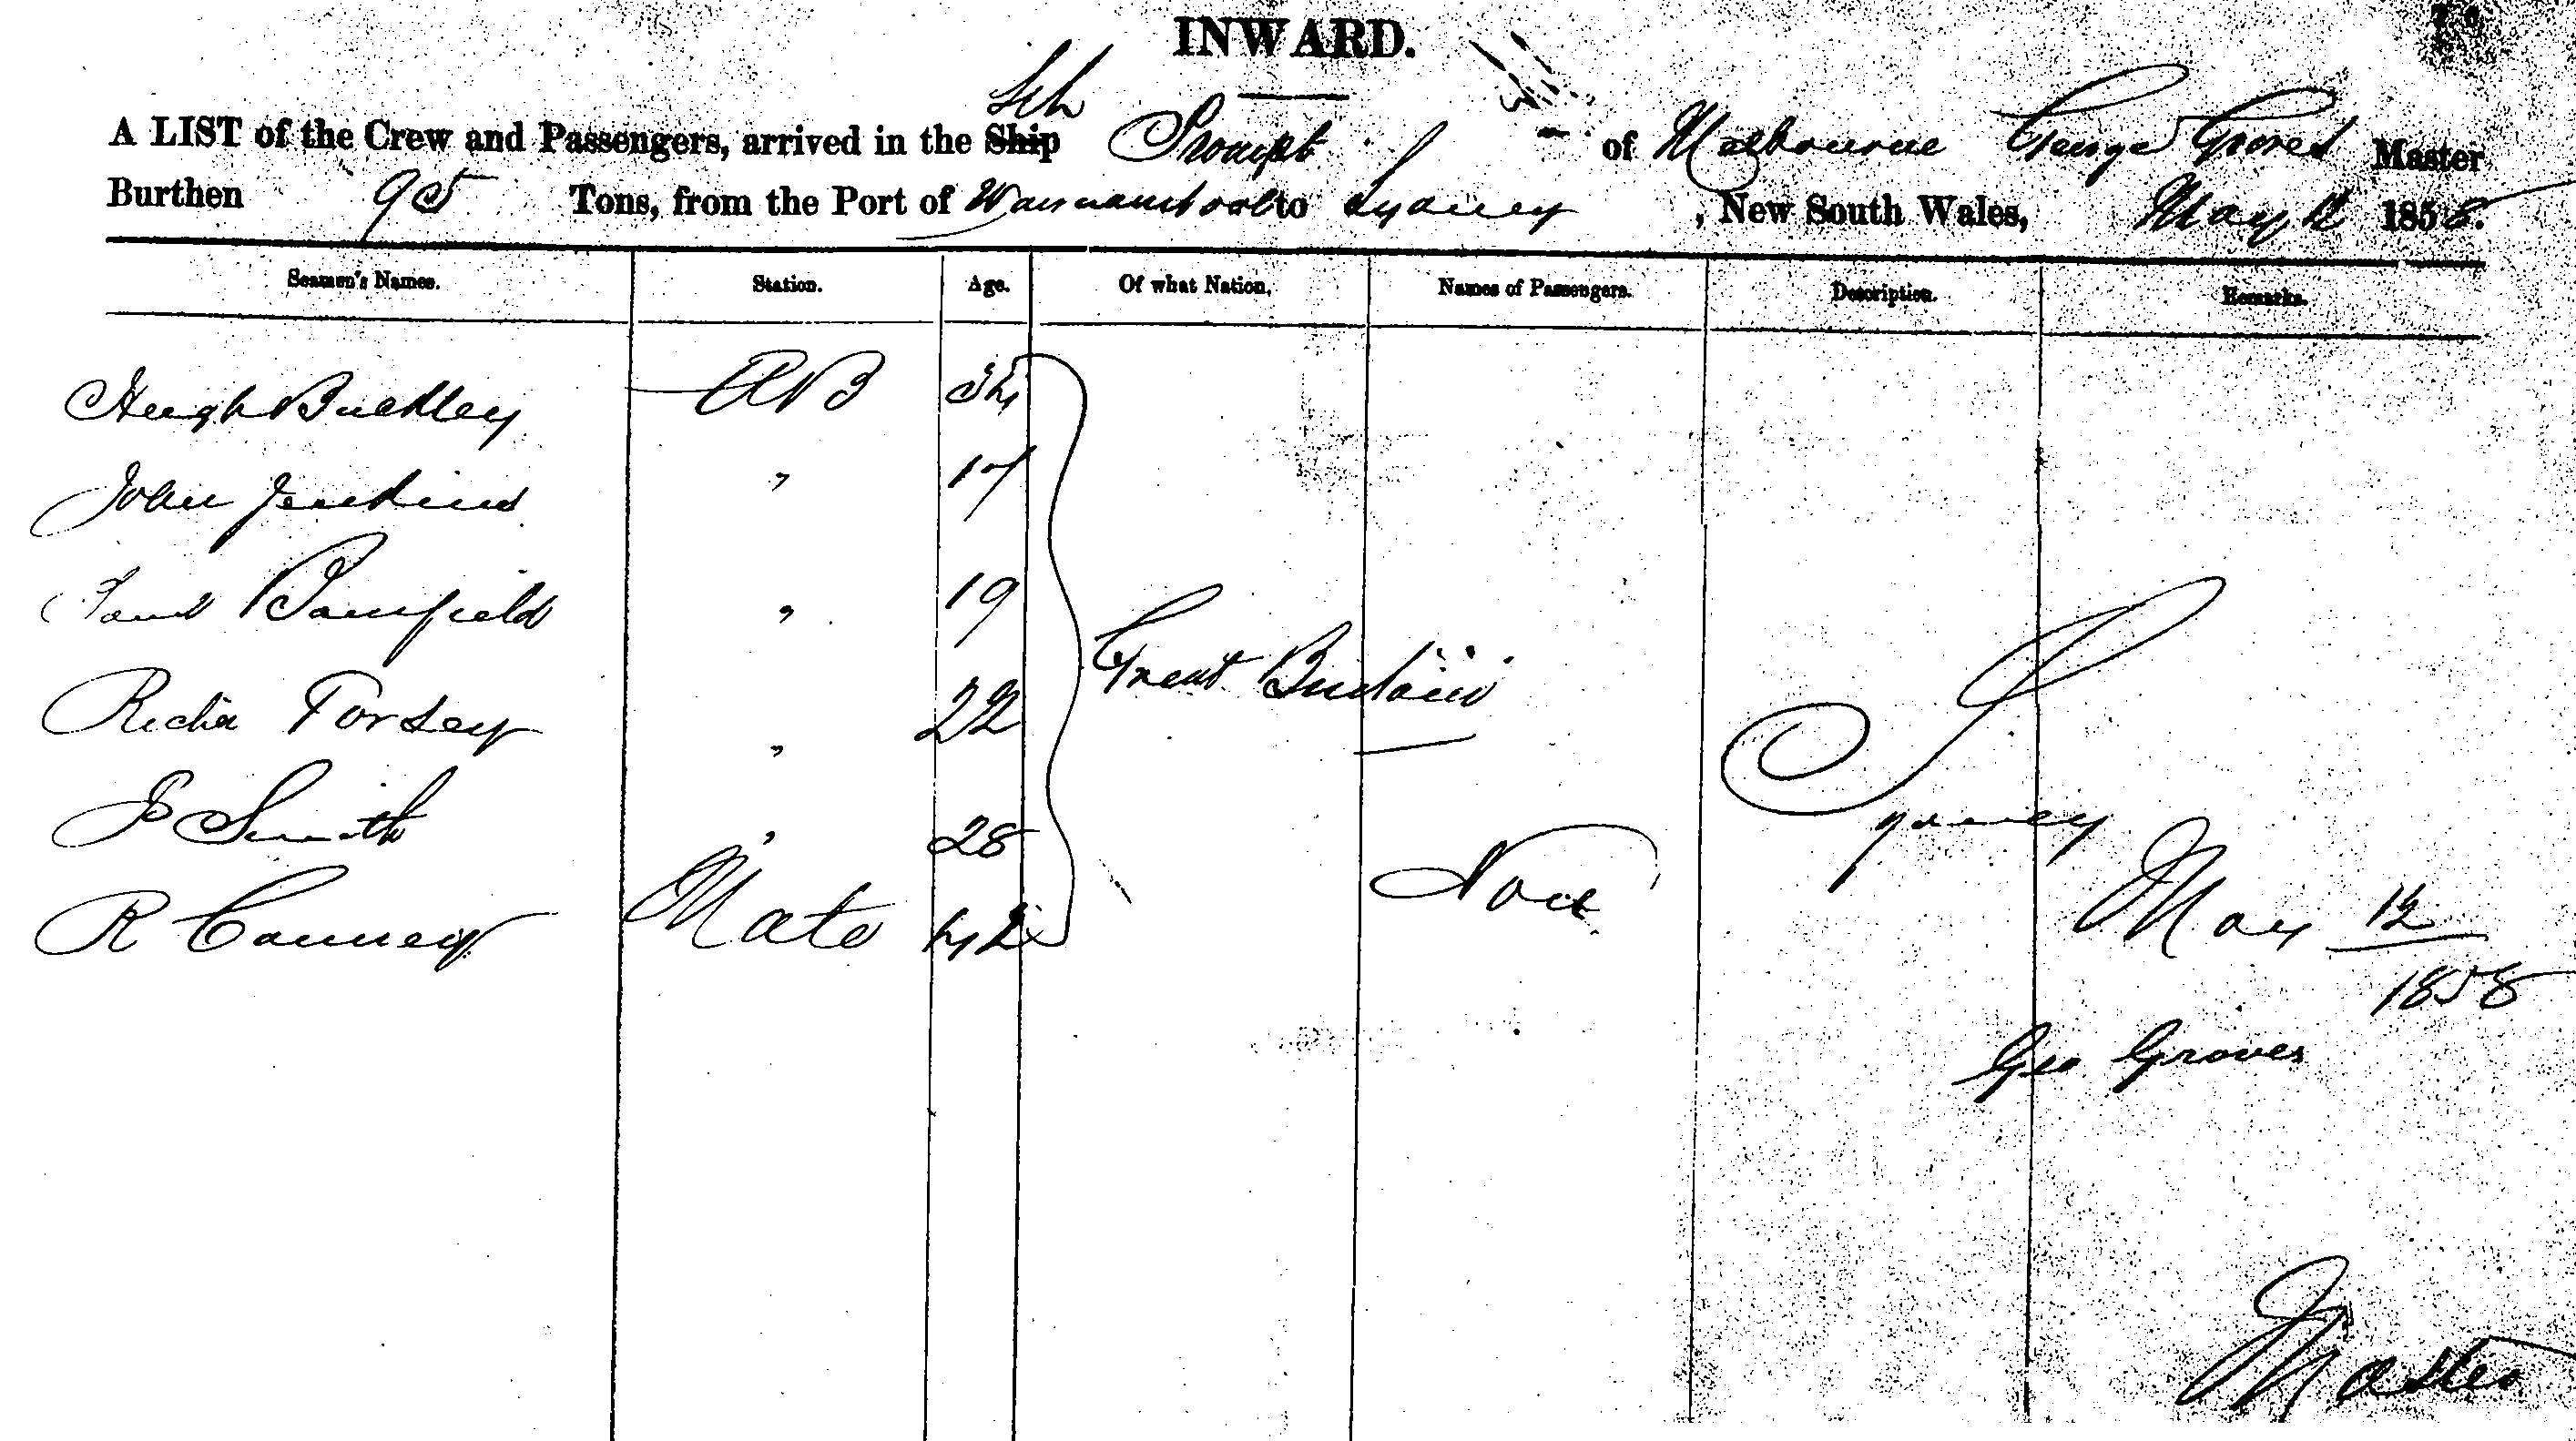 INWARD.
A LIST of the Crew and Passengers, arrived in the Ship Sch Prompt of Melbourne George Groves Master
Burthen 95 Tons, from the Port of Warrnambool to Sydney, New South Wales, May 12 1858.
Seamen's Names. Station. Age. Of what Nation. Names of Passengers. Description. Remarks.
Hugh Buckley AB 34
John Jenkins " 17
Banfield " 19
Great Britain
Torsey " 22
Smith " 28
Sydney
R Canney Mate 42 Non May 12
1858
Geo Groves
Master